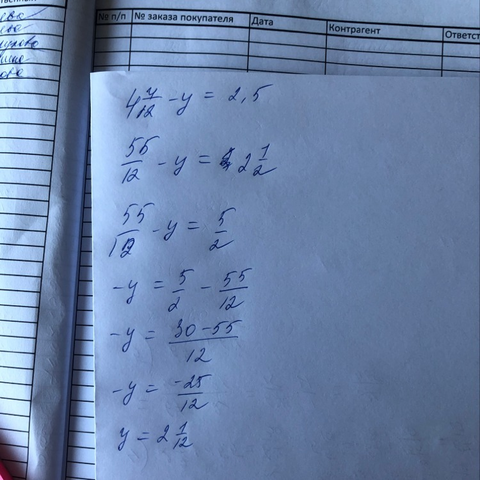 № п/п № заказа покупателя Дата Контрагент
4 7/12 - y = 2,5
55/12 - y = 2 1/2
55/12 - y = 5/2
-y = 5/2 - 55/12
-y = (30-55)/12
-y = -25/12
y = 2 1/12